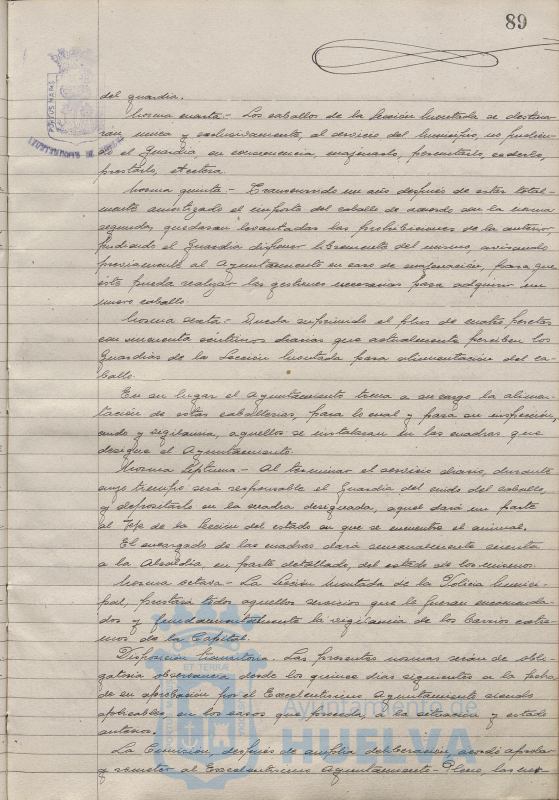 89
del guardia.
Norma cuarta.- Los caballos de la Sección Montada se destina-
rán única y exclusivamente, al servicio del Municipio, no pudien-
do el Guardia en consecuencia, enajenarlo, permutarlo, cederlo,
prestarlo, etcétera.
Norma quinta.- Transcurrido un año después de estar total-
mente amortizado el importe del caballo de acuerdo con la norma
segunda, quedarán levantadas las prohibiciones de la anterior,
pudiendo el Guardia disponer libremente del mismo, avisando
previamente al Ayuntamiento en caso de enajenación, para que
éste pueda realizar las gestiones necesarias para adquirir un
nuevo caballo.
Norma sexta.- Queda suprimido el plus de cuatro pesetas
con cincuenta céntimos diarias que actualmente perciben los
Guardias de la Sección Montada para alimentación del ca-
ballo.
En su lugar el Ayuntamiento toma a su cargo la alimen-
tación de estas caballerías, para lo cual y para su inspección,
cuido y vigilancia, aquellos se instalarán en las cuadras que
designe el Ayuntamiento.
Norma séptima.- Al terminar el servicio diario, durante
cuyo tiempo será responsable el Guardia del cuido del caballo,
y depositarlo en la cuadra designada, aquel dará un parte
al Jefe de la Sección del estado en que se encuentre el animal.
El encargado de las cuadras dará semanalmente cuenta
a la Alcaldía, en parte detallado, del estado de los mismos.
Norma octava.- La Sección Montada de la Policía Munici-
pal, prestará todos aquellos servicios que le fueran encomenda-
dos y fundamentalmente la vigilancia de los barrios extre-
mos de la Capital.
Disposición transitoria. Las presentes normas serán de obli-
gatoria observancia desde los quince días siguientes a la fecha
de su aprobación por el Excelentísimo Ayuntamiento siendo
aplicables, en los casos que proceda, a la situación y estado
anterior.
La Comisión, después de amplia deliberación acordó aprobar
y remitir al Excelentísimo Ayuntamiento-Pleno, las
PORTUS MARIS
ET TERRAE
Ayuntamiento de
HUELVA